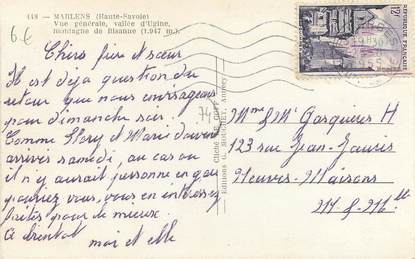 118 - MARLENS (Haute-Savoie)
Vue générale, vallée d'Ugine,
montagne de Bisanne (1.947 m.)
6€
Chers frère et sœur
Il est déjà question du
retour que nous envisageons
pour dimanche soir.
Comme Story et Marie doivent
arrivés samedi, au cas ou
il n'y aurait personne en gare
pourriez vous, vous en intéresser
faites pour le mieux.
A bientot moi et elle
74
Cliché
Editions G. Annecy
12F
REPUBLIQUE FRANÇAISE
Mme & Mr Gasquières H
123 rue Jean-Jaurès
Neuves-Maisons
M-&-Mlle